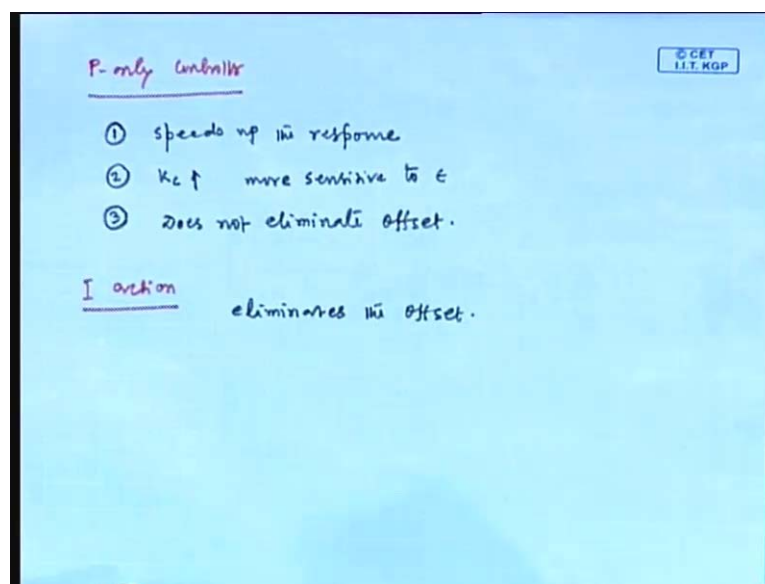 P-only Controller
© CET
I.I.T. KGP
① speeds up the response
② Kc ↑ more sensitive to ϵ
③ Does not eliminate offset.
I action
eliminates the offset.